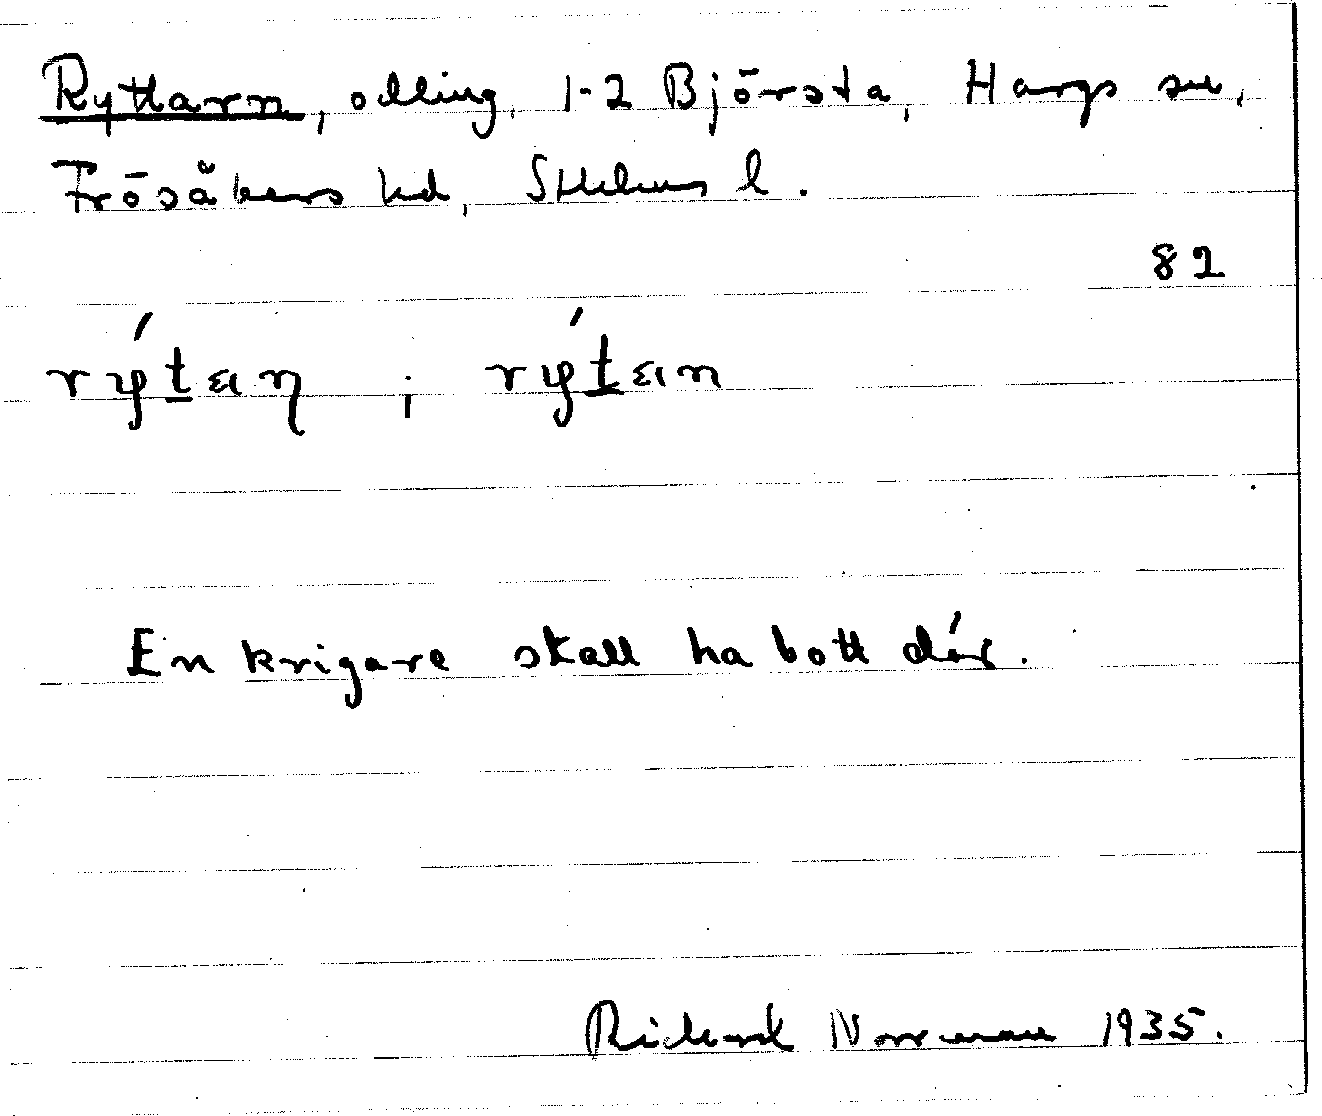 Ryttarn, odling, 1-2 Björsta, Hargs sn,
Frösåkers hd, Sthlms l.
82
En krigare skall ha bott där.
Richard Norrman 1935.